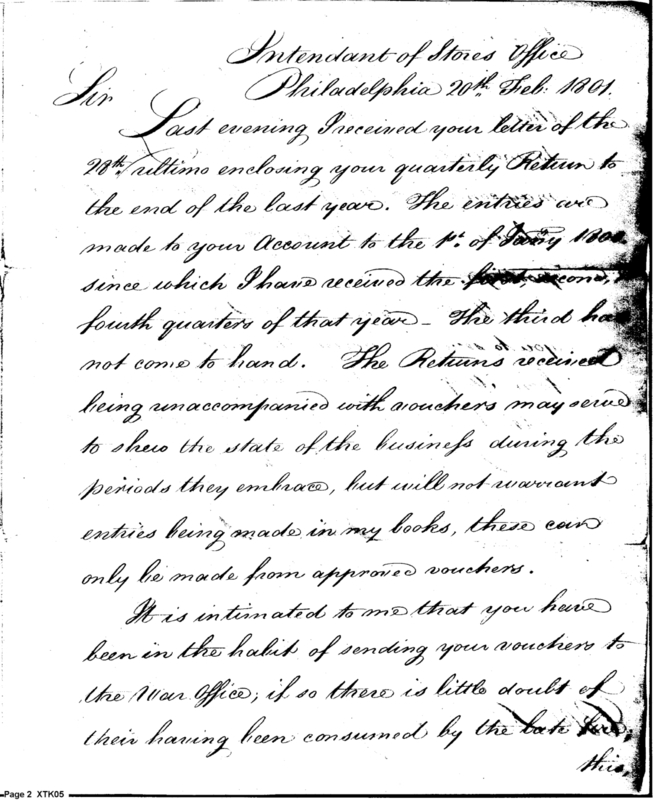 Intendant of Stores Office
Philadelphia 20th. Feb: 1801.
Sir
Last evening I received your letter of the
28th. ultimo enclosing your quarterly Return to
the end of the last year. The entries are
made to your Account to the 1st. of Jan'y 1800
since which I have received the first, second, &
fourth quarters of that year – The third has
not come to hand. The Returns received
being unaccompanied with vouchers may serve
to shew the state of the business during the
periods they embrace, but will not warrant
entries being made in my books, these can
only be made from approved vouchers.
It is intimated to me that you have
been in the habit of sending your vouchers to
the War Office; if so there is little doubt of
their having been consumed by the late fire;
this,
Page 2 XTK05